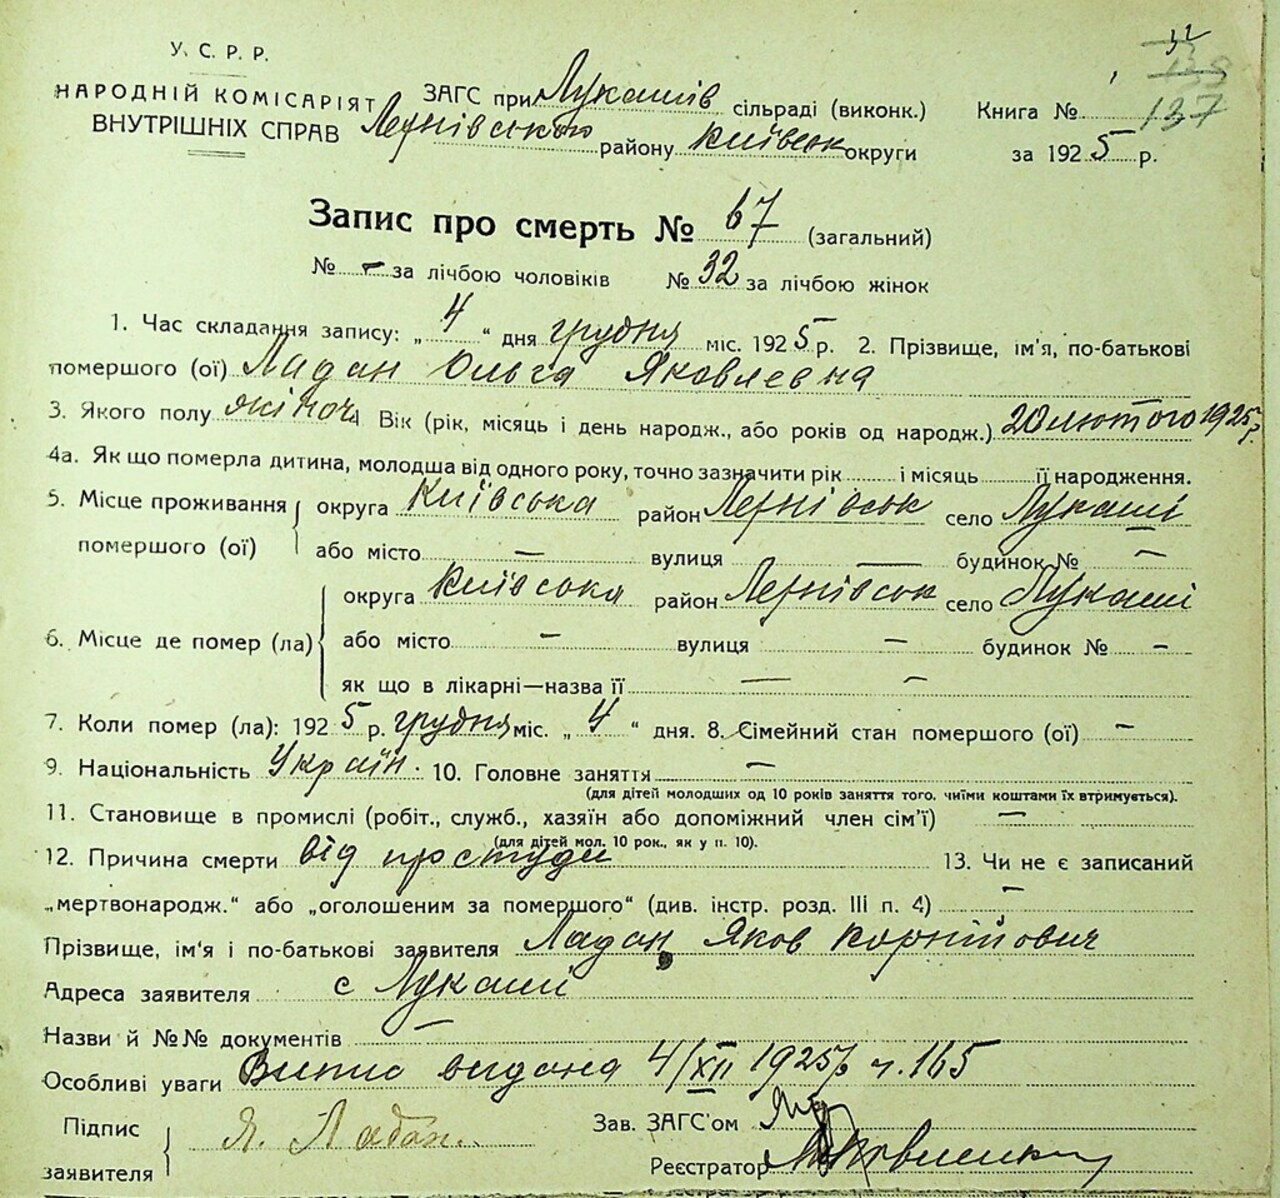 У. С. Р. Р.
НАРОДНІЙ КОМІСАРІЯТ
ВНУТРІШНІХ СПРАВ
ЗАГС при Лукашів сільраді (виконк.)
району Київськ округи
Книга № 137
за 1925 р.
32
Запис про смерть № 67 (загальний)
№ - за лічбою чоловіків № 32 за лічбою жінок
1. Час складання запису: „4“ дня грудня міс. 1925 р. 2. Прізвище, ім'я, по-батькові
помершого (ої) Ладан Ольга Яковлевна
3. Якого полу жіноч 4 Вік (рік, місяць і день народж., або років од народж.) 20 лютого 1925 р.
4а. Як що померла дитина, молодша від одного року, точно зазначити рік і місяць її народження.
5. Місце проживання помершого (ої) округа Київська район село Лукаші
або місто — вулиця — будинок № —
6. Місце де помер (ла) округа Київська район село Лукаші
або місто — вулиця — будинок № —
як що в лікарні—назва її — —
7. Коли помер (ла): 1925 р. грудня міс. „4“ дня. 8. Сімейний стан помершого (ої) —
9. Національність Україн. 10. Головне заняття —
(для дітей молодших од 10 років заняття того, чиїми коштами їх втримується).
11. Становище в промислі (робіт., служб., хазяїн або допоміжний член сім'ї) —
(для дітей мол. 10 рок., як у п. 10).
12. Причина смерти від простуди 13. Чи не є записаний
„мертвонародж.“ або „оголошеним за помершого“ (див. інстр. розд. III п. 4) —
Прізвище, ім'я і по-батькові заявителя Ладан Яков Корнійович
Адреса заявителя с Лукаші
Назви й №№ документів —
Особливі уваги Випис видана 4/XII 1925 р ч. 165
Підпис заявителя Я. Ладан.
Зав. ЗАГС'ом
Реєстратор